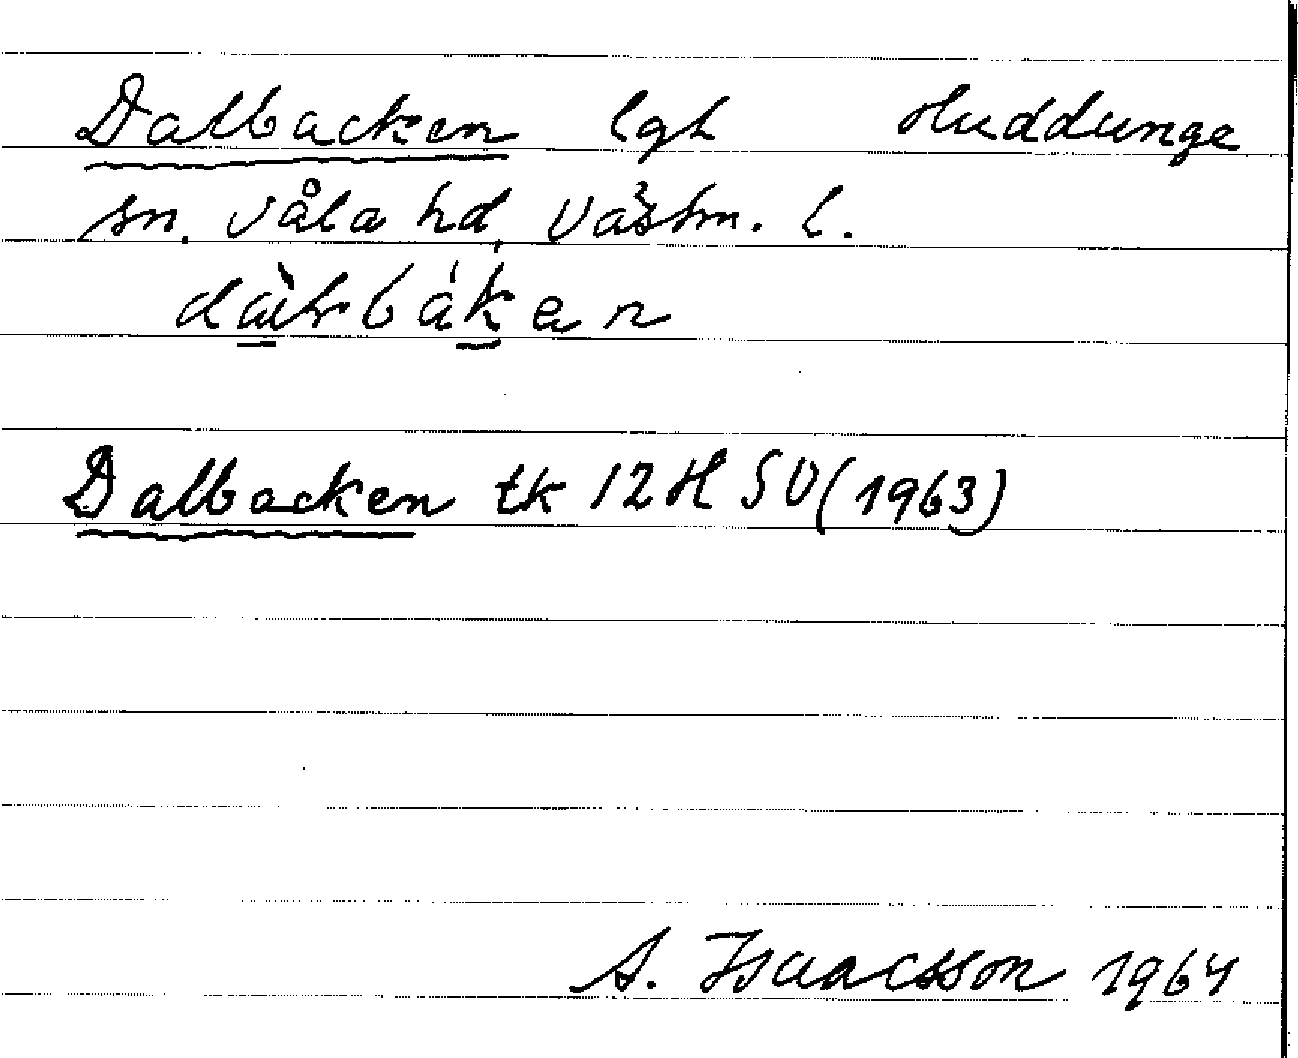 Dalbacken lgh Huddunge
sn. Våla hd, Västm. l.
Dalbacken tk 12H SV (1963)
A. Isaacsson 1964